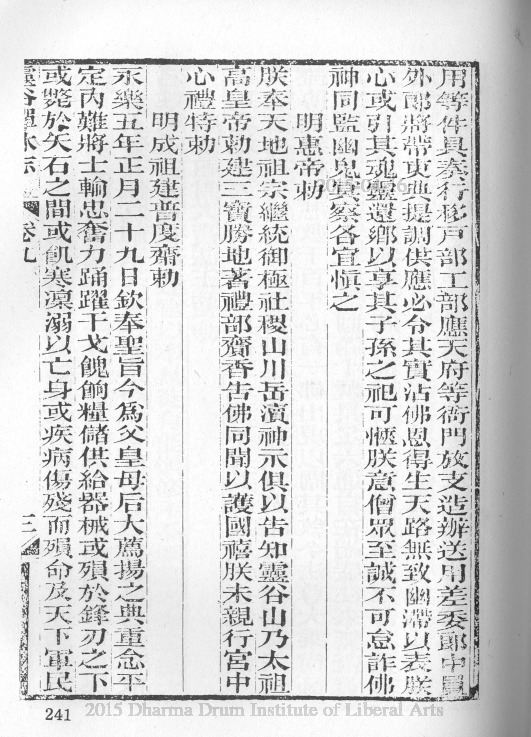 用等件具奏行移戸部工部應天府等衙門放支造辦送用差委郎中員
外郎將帶吏典提調供應必令其實沾佛恩得生天路無致幽滯以表朕
心或引其魂靈還鄉以享其子孫之祀可愜朕意僧眾至誠不可怠詐佛
神同監幽鬼冥察各宜愼之
明惠帝勅
朕奉天地祖宗繼統御極社稷山川岳瀆神示俱以告知靈谷山乃太祖
高皇帝勅建三寶勝地著禮部齎香告佛同聞以護國禧朕未親行宮中
心禮特勅
明成祖建普度齋勅
永樂五年正月二十九日欽奉聖旨今爲父皇母后大薦揚之典重念平
定內難將士輸忠奮力踊躍干戈餽餉糧儲供給器械或殞於鋒刃之下
或斃於矢石之間或飢寒凜溺以亡身或疾病傷殘而殞命及天下軍民
靈谷禪林志
卷九
三
241
2015 Dharma Drum Institute of Liberal Arts